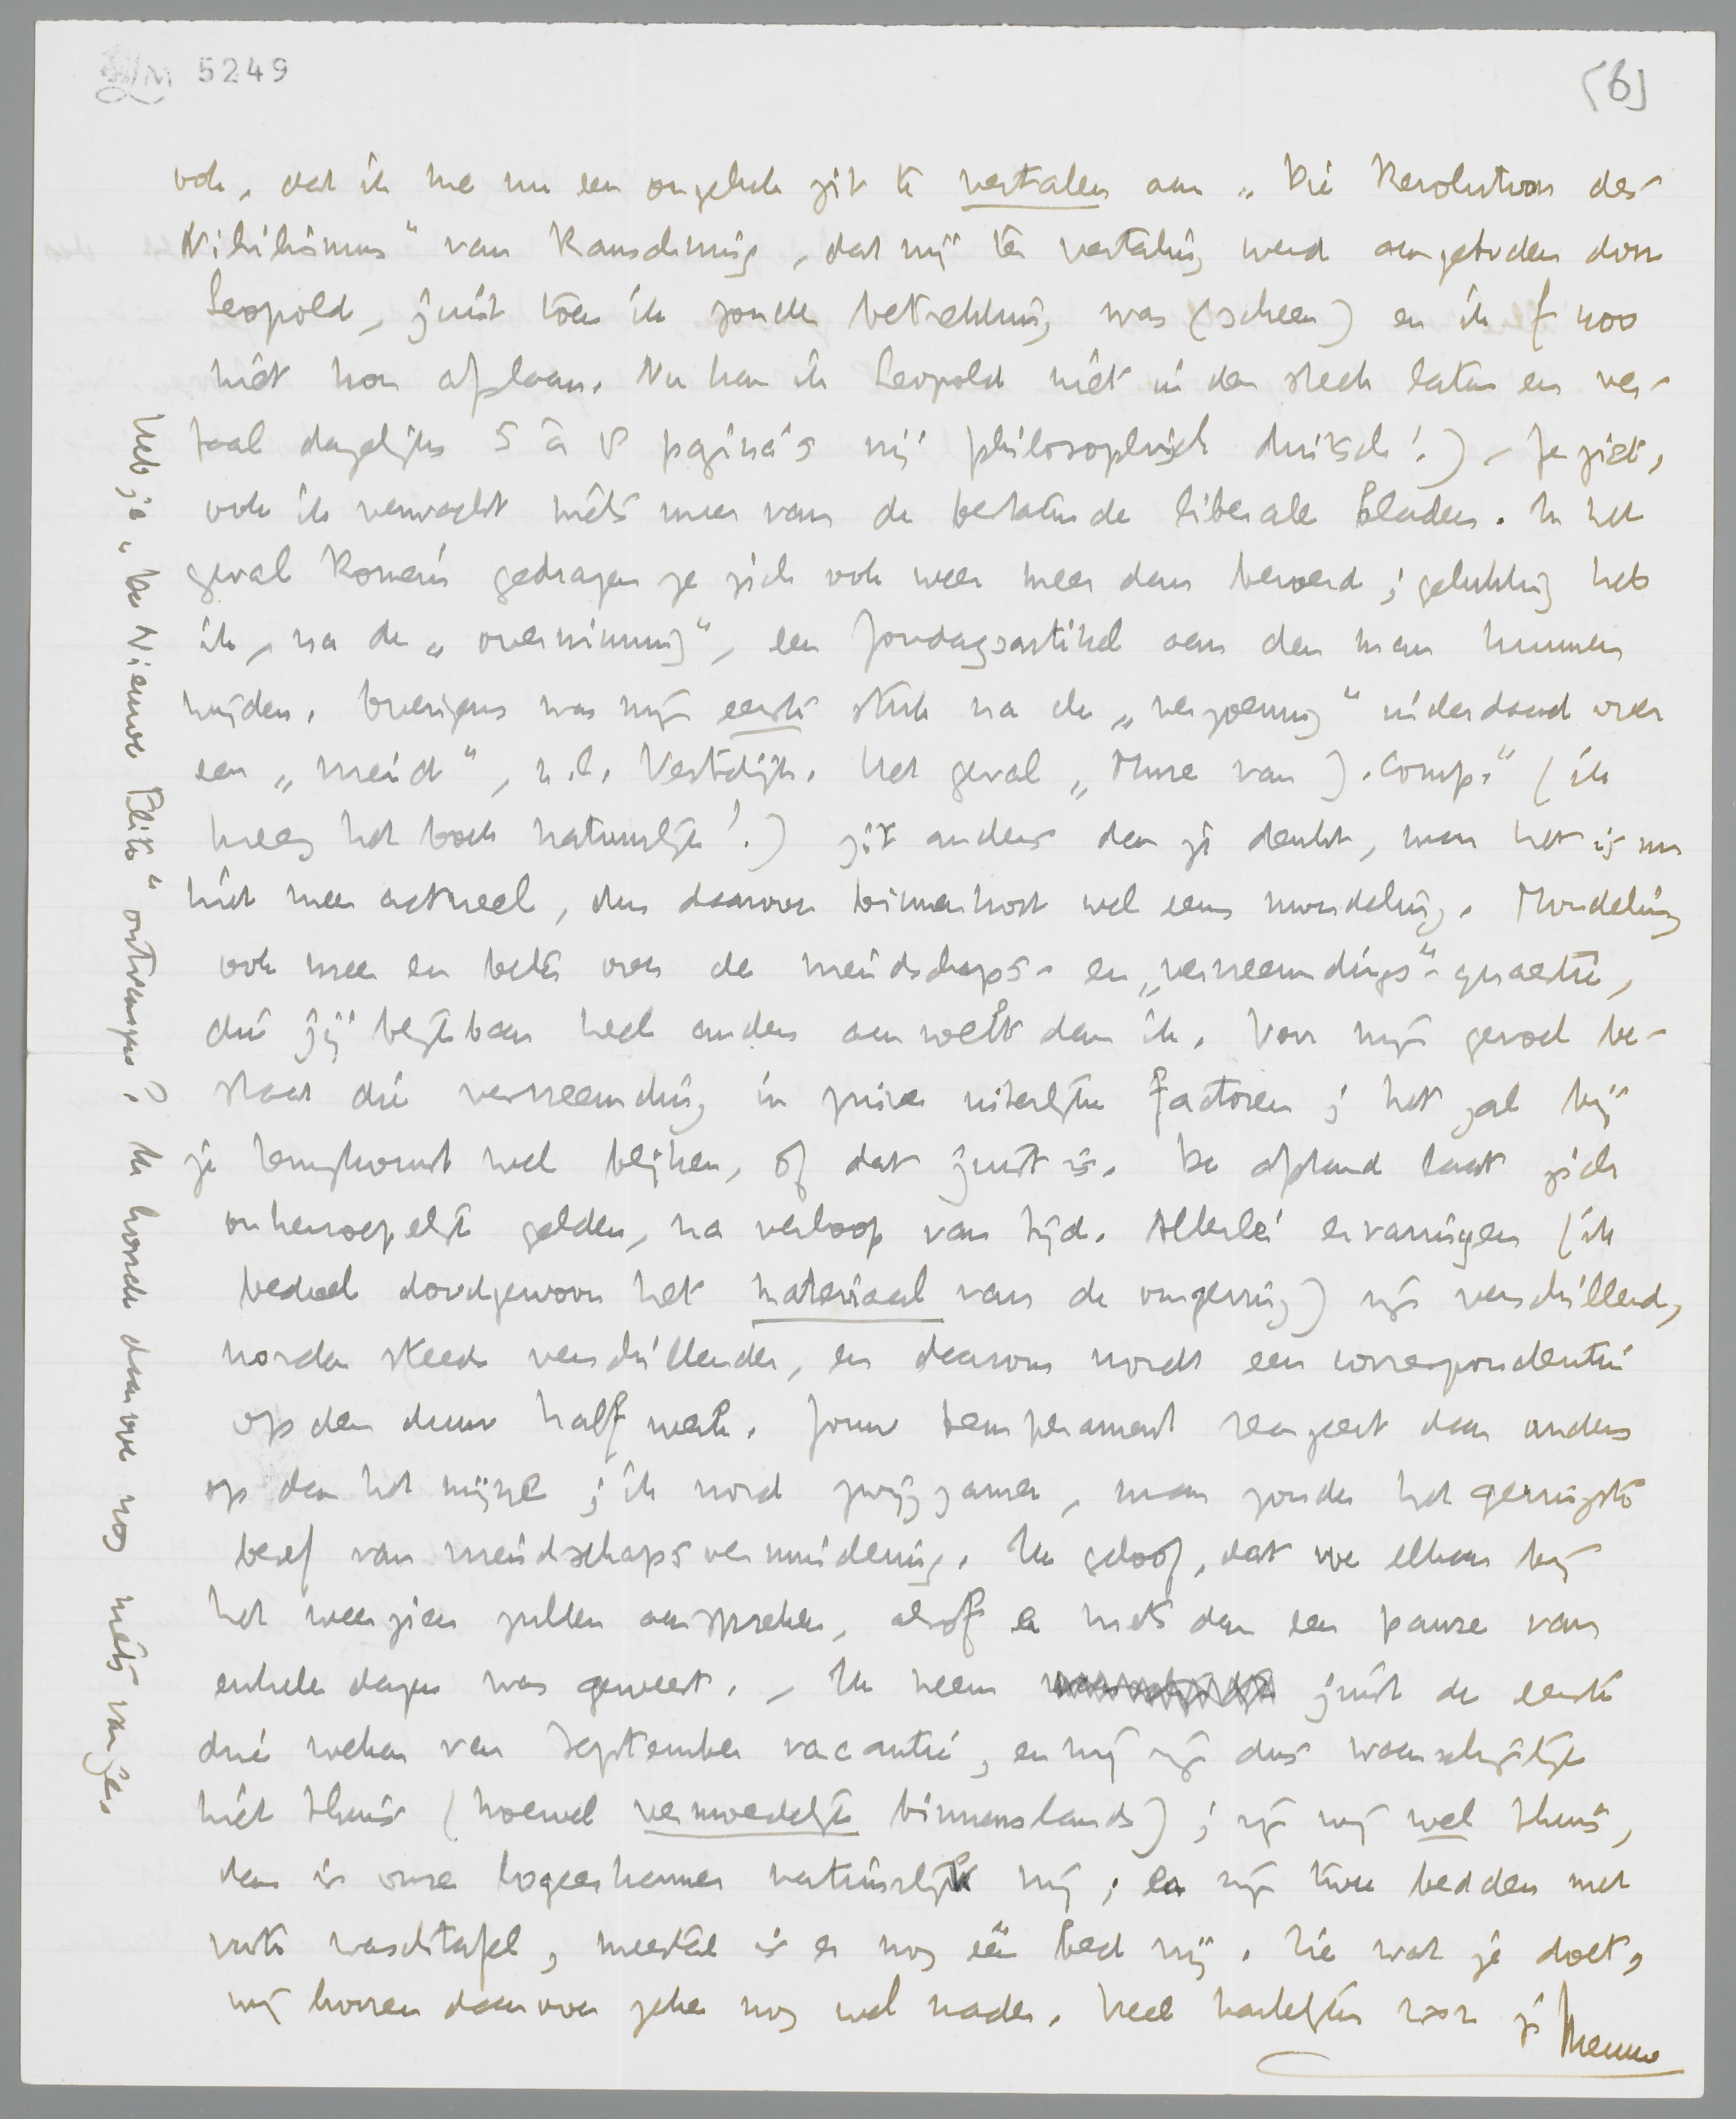 LM 5249
[6]
ook, dat ik me nu een ongeluk zit te vertalen aan „Die Revolution des
Nihilismus" van Rauschning, dat mij ter vertaling werd aangeboden door
Leopold, juist toen ik zonder betrekking was (scheen) en ik f 400
niet kon afslaan. Nu kan ik Leopold niet in den steek laten en ver-
taal dagelijks 5 à 8 pagina's vrij philosophisch duitsch!) – Je ziet,
ook ik verwacht niets meer van de bestaande liberale bladen. In het
geval Romein gedragen ze zich ook weer meer dan beroerd; gelukkig heb
ik, na de „overwinning", een Zondagsartikel aan den man kunnen
krijgen. Overigens was mijn eerste stuk na de „verzoening" inderdaad over
een „vriend", n.l. Vestdijk. Het geval „Muze van J. Comp." (ik
kreeg het boek natuurlijk!) zit anders dan je denkt, maar het is nu
niet meer actueel, dus daarover binnenkort wel eens mondeling. Mondeling
ook meer en beter over de vriendschaps- en „vervreemdings"-quaestie,
die jij blijkbaar heel anders aanvoelt dan ik. Voor mijn gevoel be-
staat die vervreemding in zuiver uiterlijke factoren; het zal bij
je terugkomst wel blijken, of dat juist is. De afstand laat zich
onherroepelijk gelden, na verloop van tijd. Allerlei ervaringen (ik
bedoel doodgewoon het materiaal van de omgeving) zijn verschillend,
worden steeds verschillender, en daarom wordt een correspondentie
op den duur half werk. Jouw temperament reageert daar anders
op dan het mijne; ik word zwijgzamer, maar zonder het geringste
besef van vriendschapsvermindering. Ik geloof, dat we elkaar bij
het weerzien zullen aanspreken, alsof er niets dan een pauze van
enkele dagen was geweest. – Ik neem juist de eerste
drie weken van September vacantie, en wij zijn dus waarschijnlijk
niet thuis (hoewel vermoedelijk binnenslands); zijn wij wel thuis,
dan is onze logeerkamer natuurlijk vrij; er zijn twee bedden met
vaste waschtafel, meestal is er nog één bed vrij. Zie wat je doet,
wij hooren daarover zeker nog wel nader. Heel hartelijke 2 x 2 je Menno
Heb je „De Nieuwe Elite" ontvangen? Ik hoorde daarover nog niets van je.